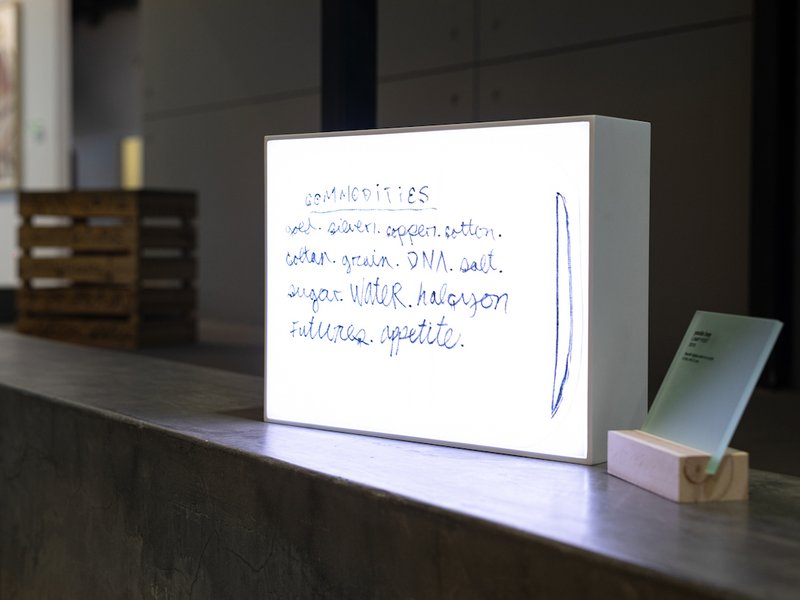 COMMODITIES
gold. silver. copper. cotton.
coltan. grain. DNA. salt.
sugar. WateR. halcyon
Futures. appetite.